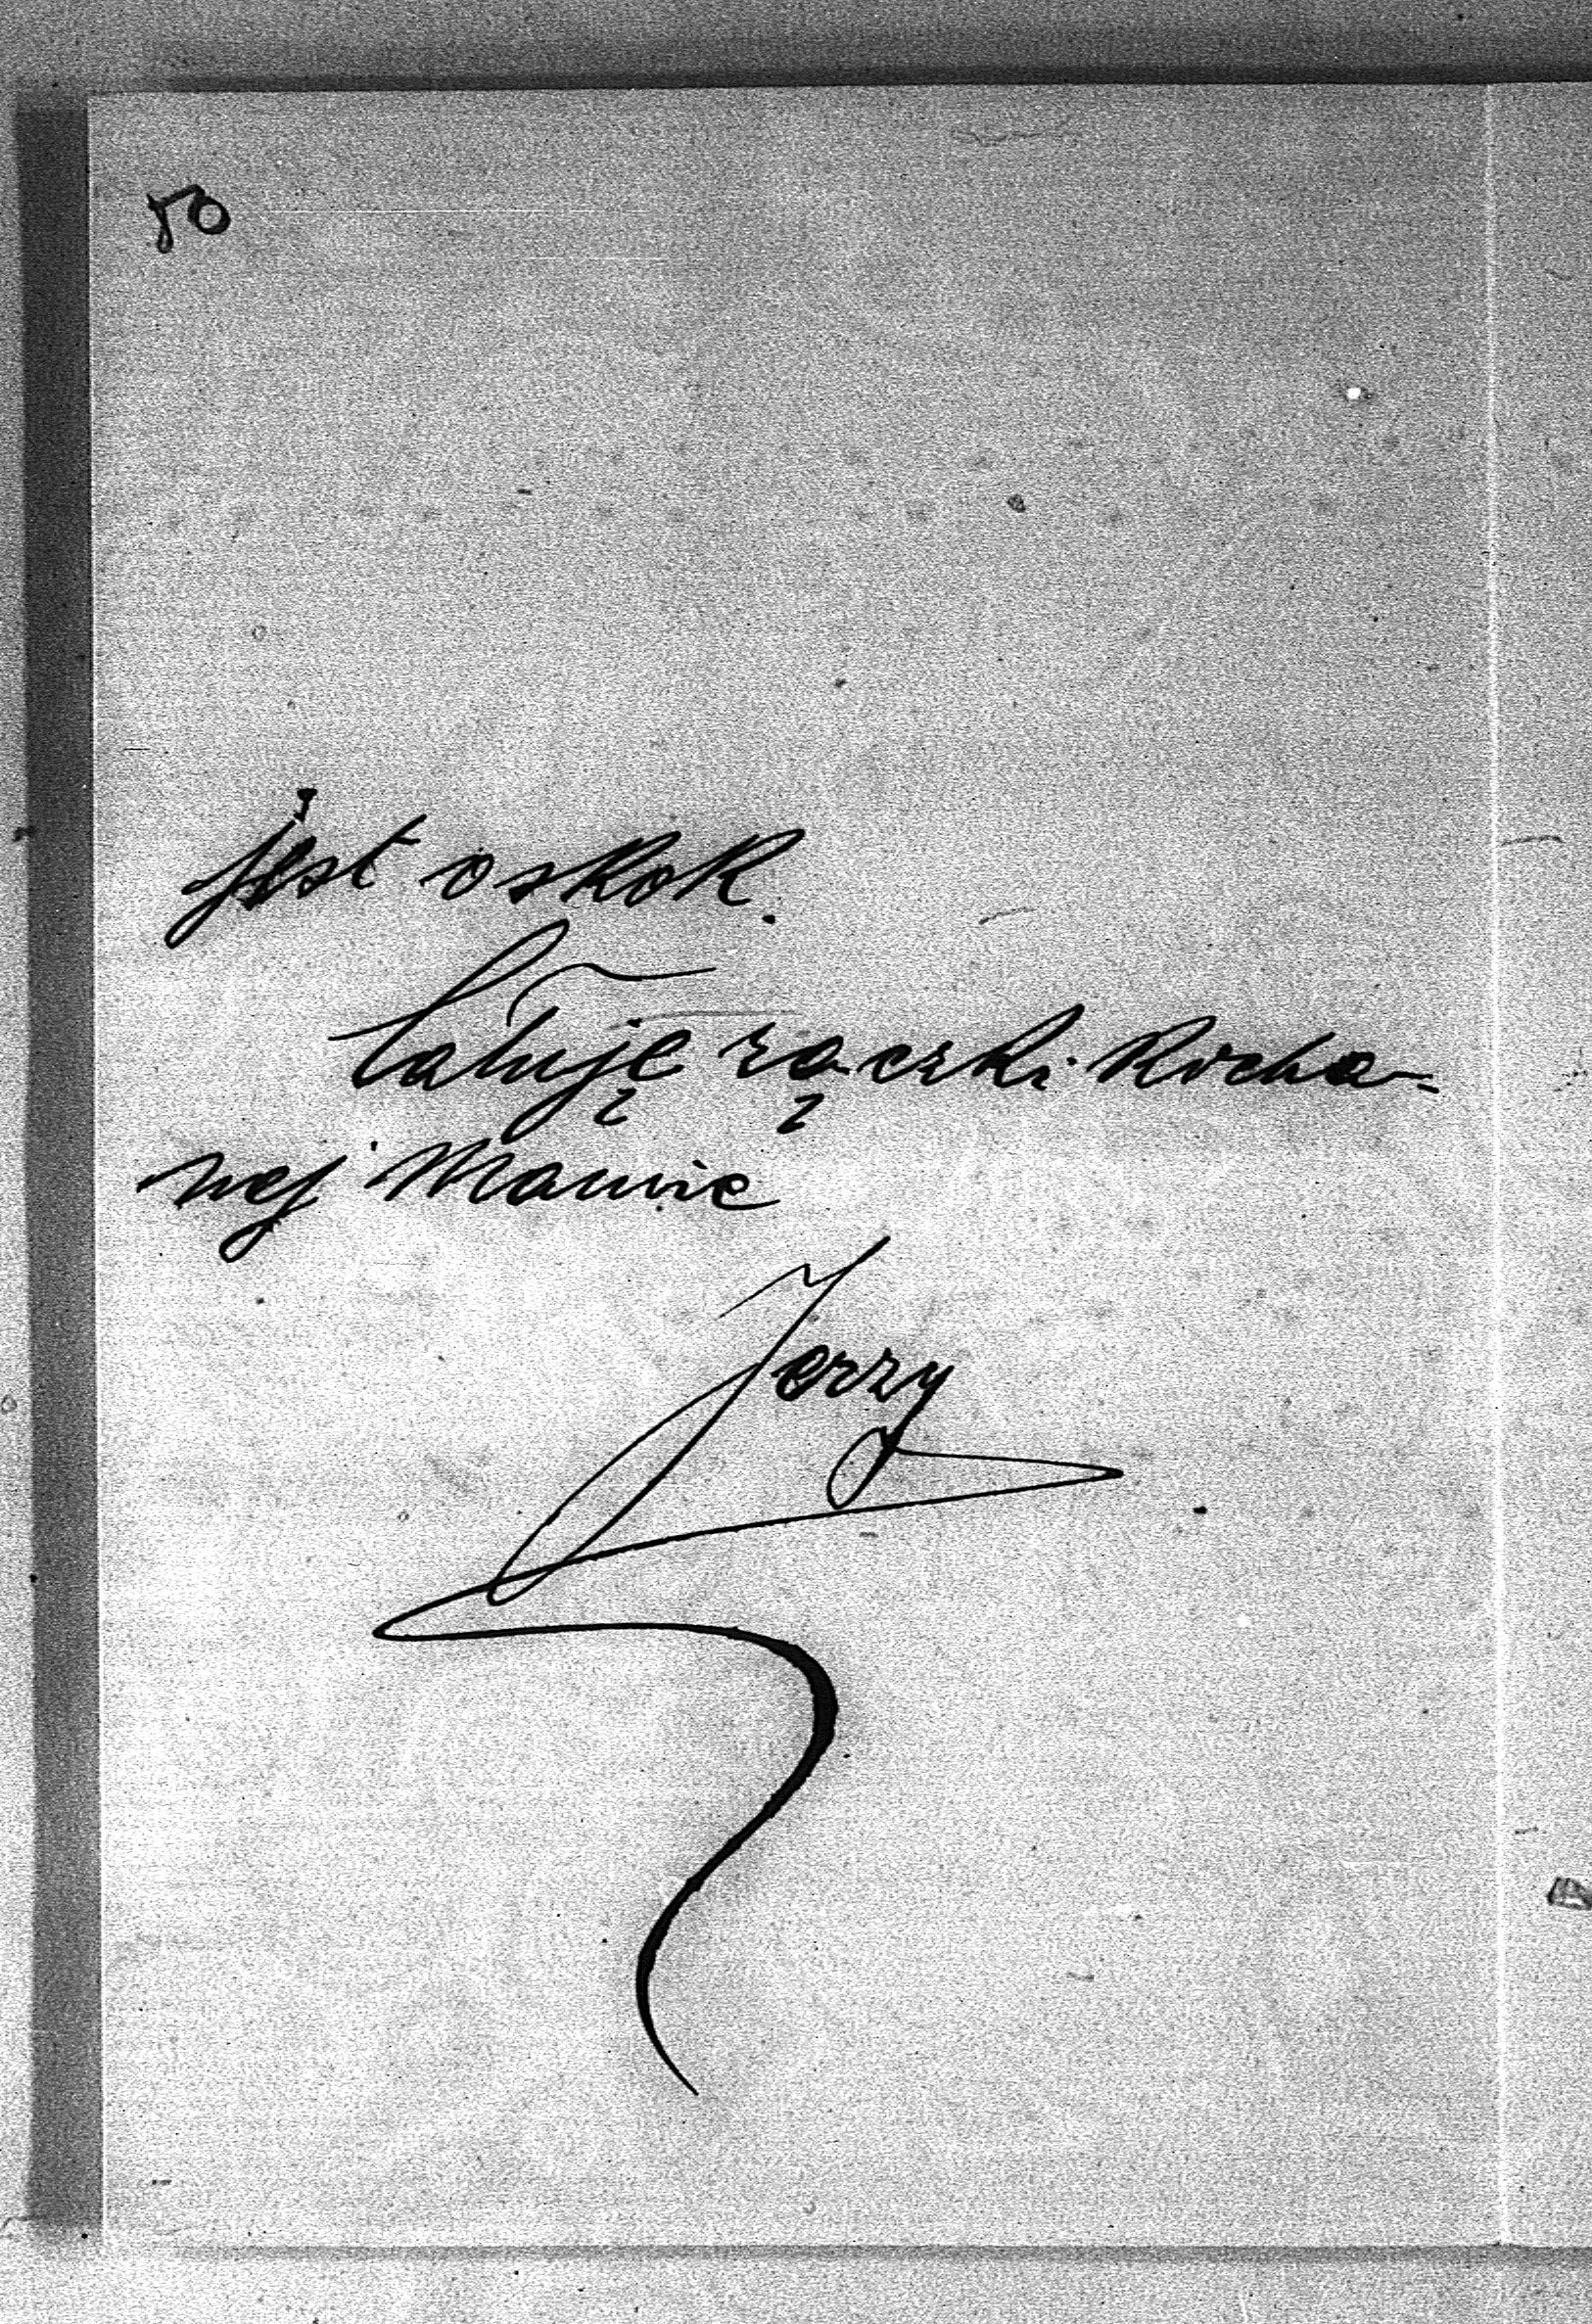 50
jest oskok.
Całuję rączki kocha-
nej Mamie
Jerzy